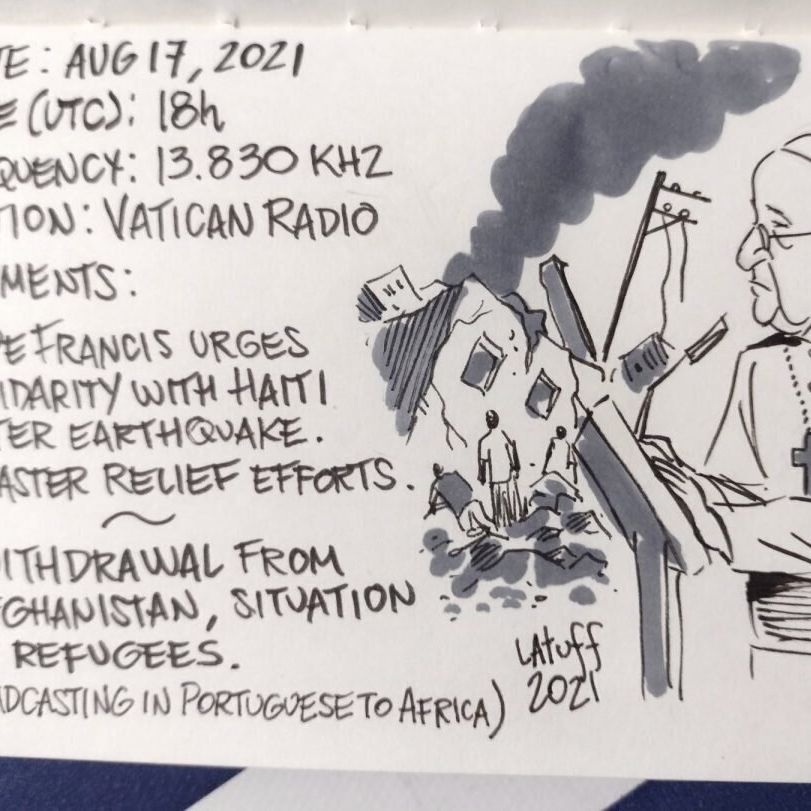 TE: AUG 17, 2021
E (UTC): 18h
QUENCY: 13.830 KHZ
TION: VATICAN RADIO
MENTS:
PE FRANCIS URGES
IDARITY WITH HAITI
TER EARTHQUAKE.
ASTER RELIEF EFFORTS.
~
ITHDRAWAL FROM
GHANISTAN, SITUATION
REFUGEES.
DCASTING IN PORTUGUESE TO AFRICA)
LATUFF
2021